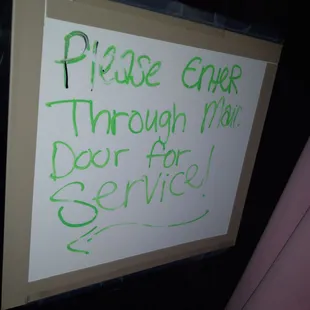 Please EnteR
Through Main
Door for
Service!